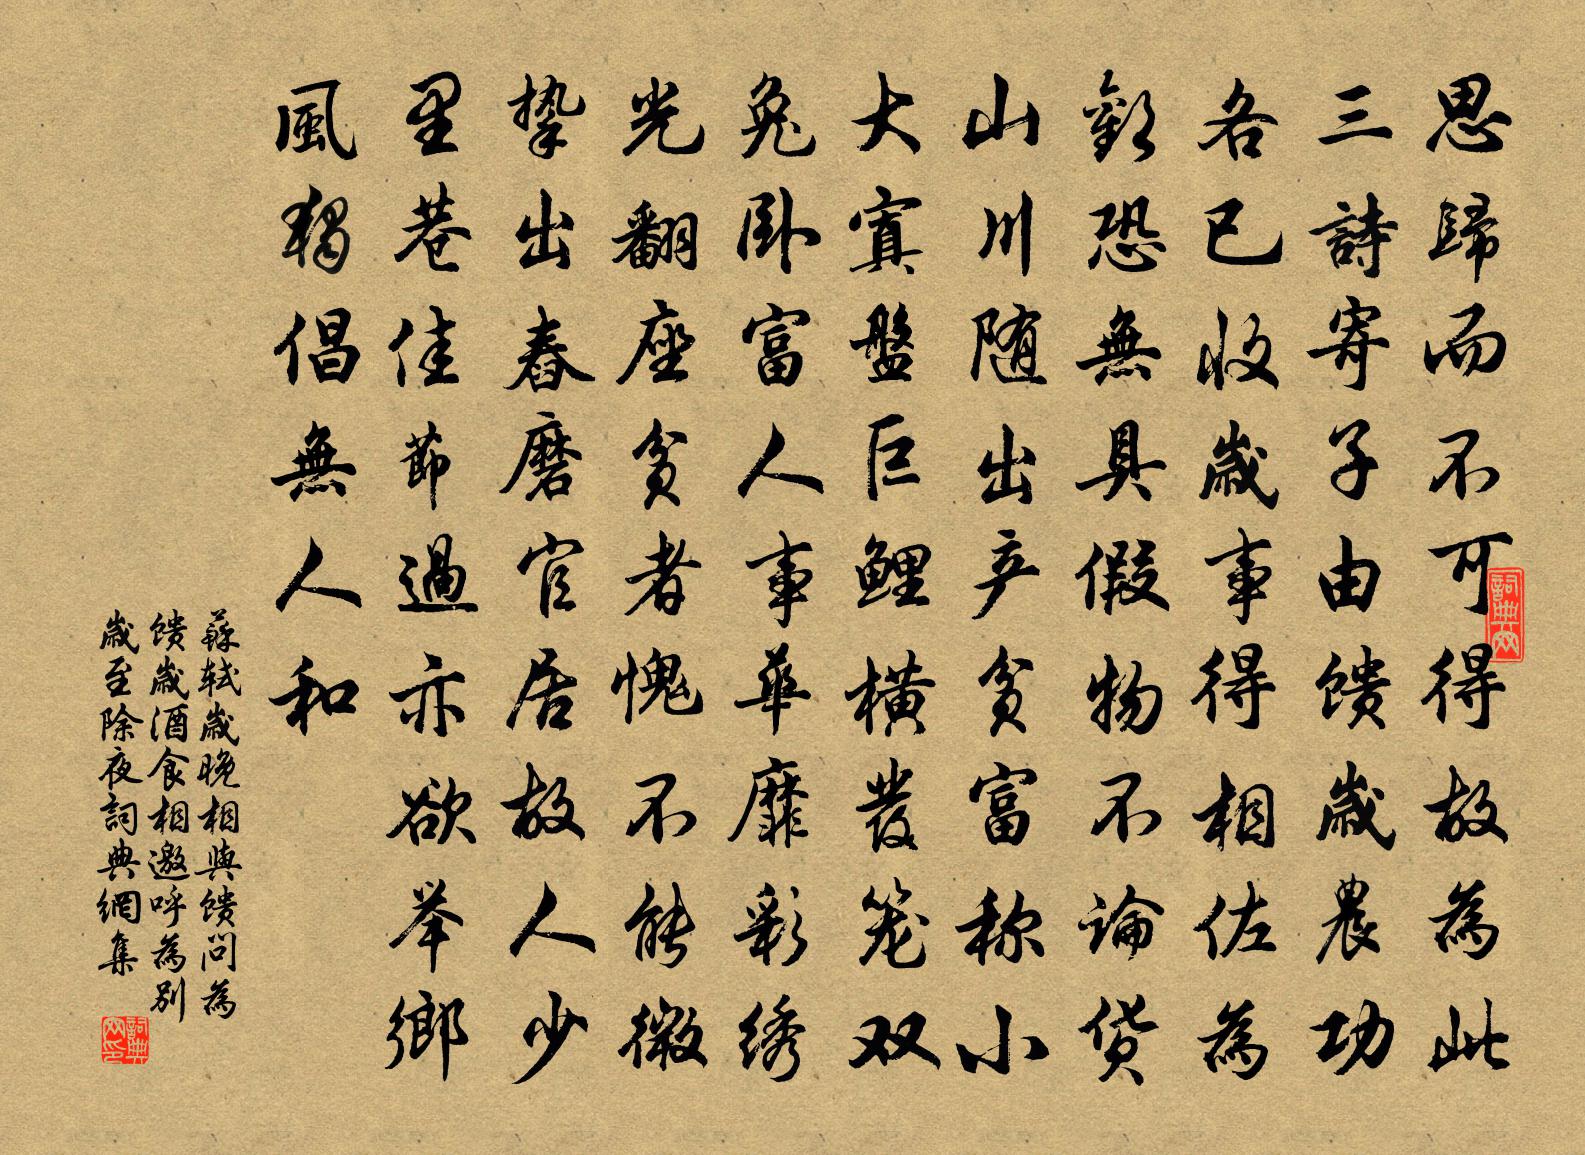 思歸而不可得故為此
三詩寄子由馈歲農功
各已收歲事得相佐為
歡恐無具假物不論货
山川随出产贫富称小
大寘盤巨鲤横發笼双
兔卧富人事華靡彩绣
光翻座贫者愧不能微
挚出舂磨官居故人少
里巷佳節過亦欲举鄉
風獨倡無人和
蘇轼歲晚相與馈问為
馈歲酒食相邀呼為别
歲至除夜詞典網集
詞典网
詞典网印